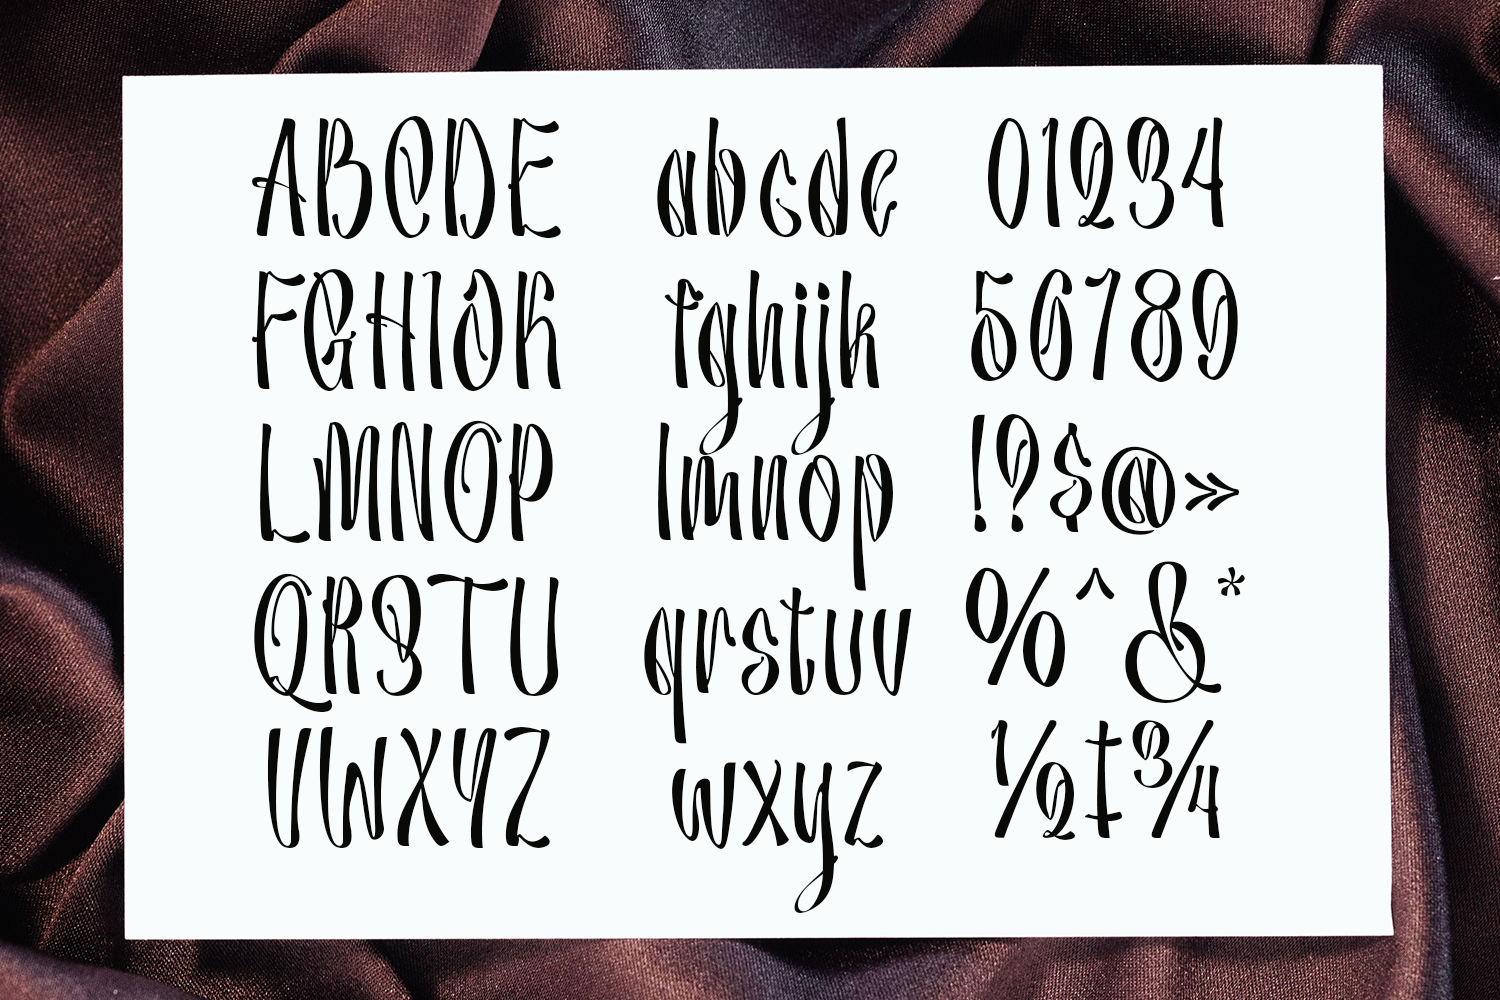 ABCDE
FGHIJK
LMNOP
QRSTU
VWXYZ
abcde
fghijk
lmnop
qrstuv
wxyz
01234
56789
!?$@»
%^&*
½‡¾